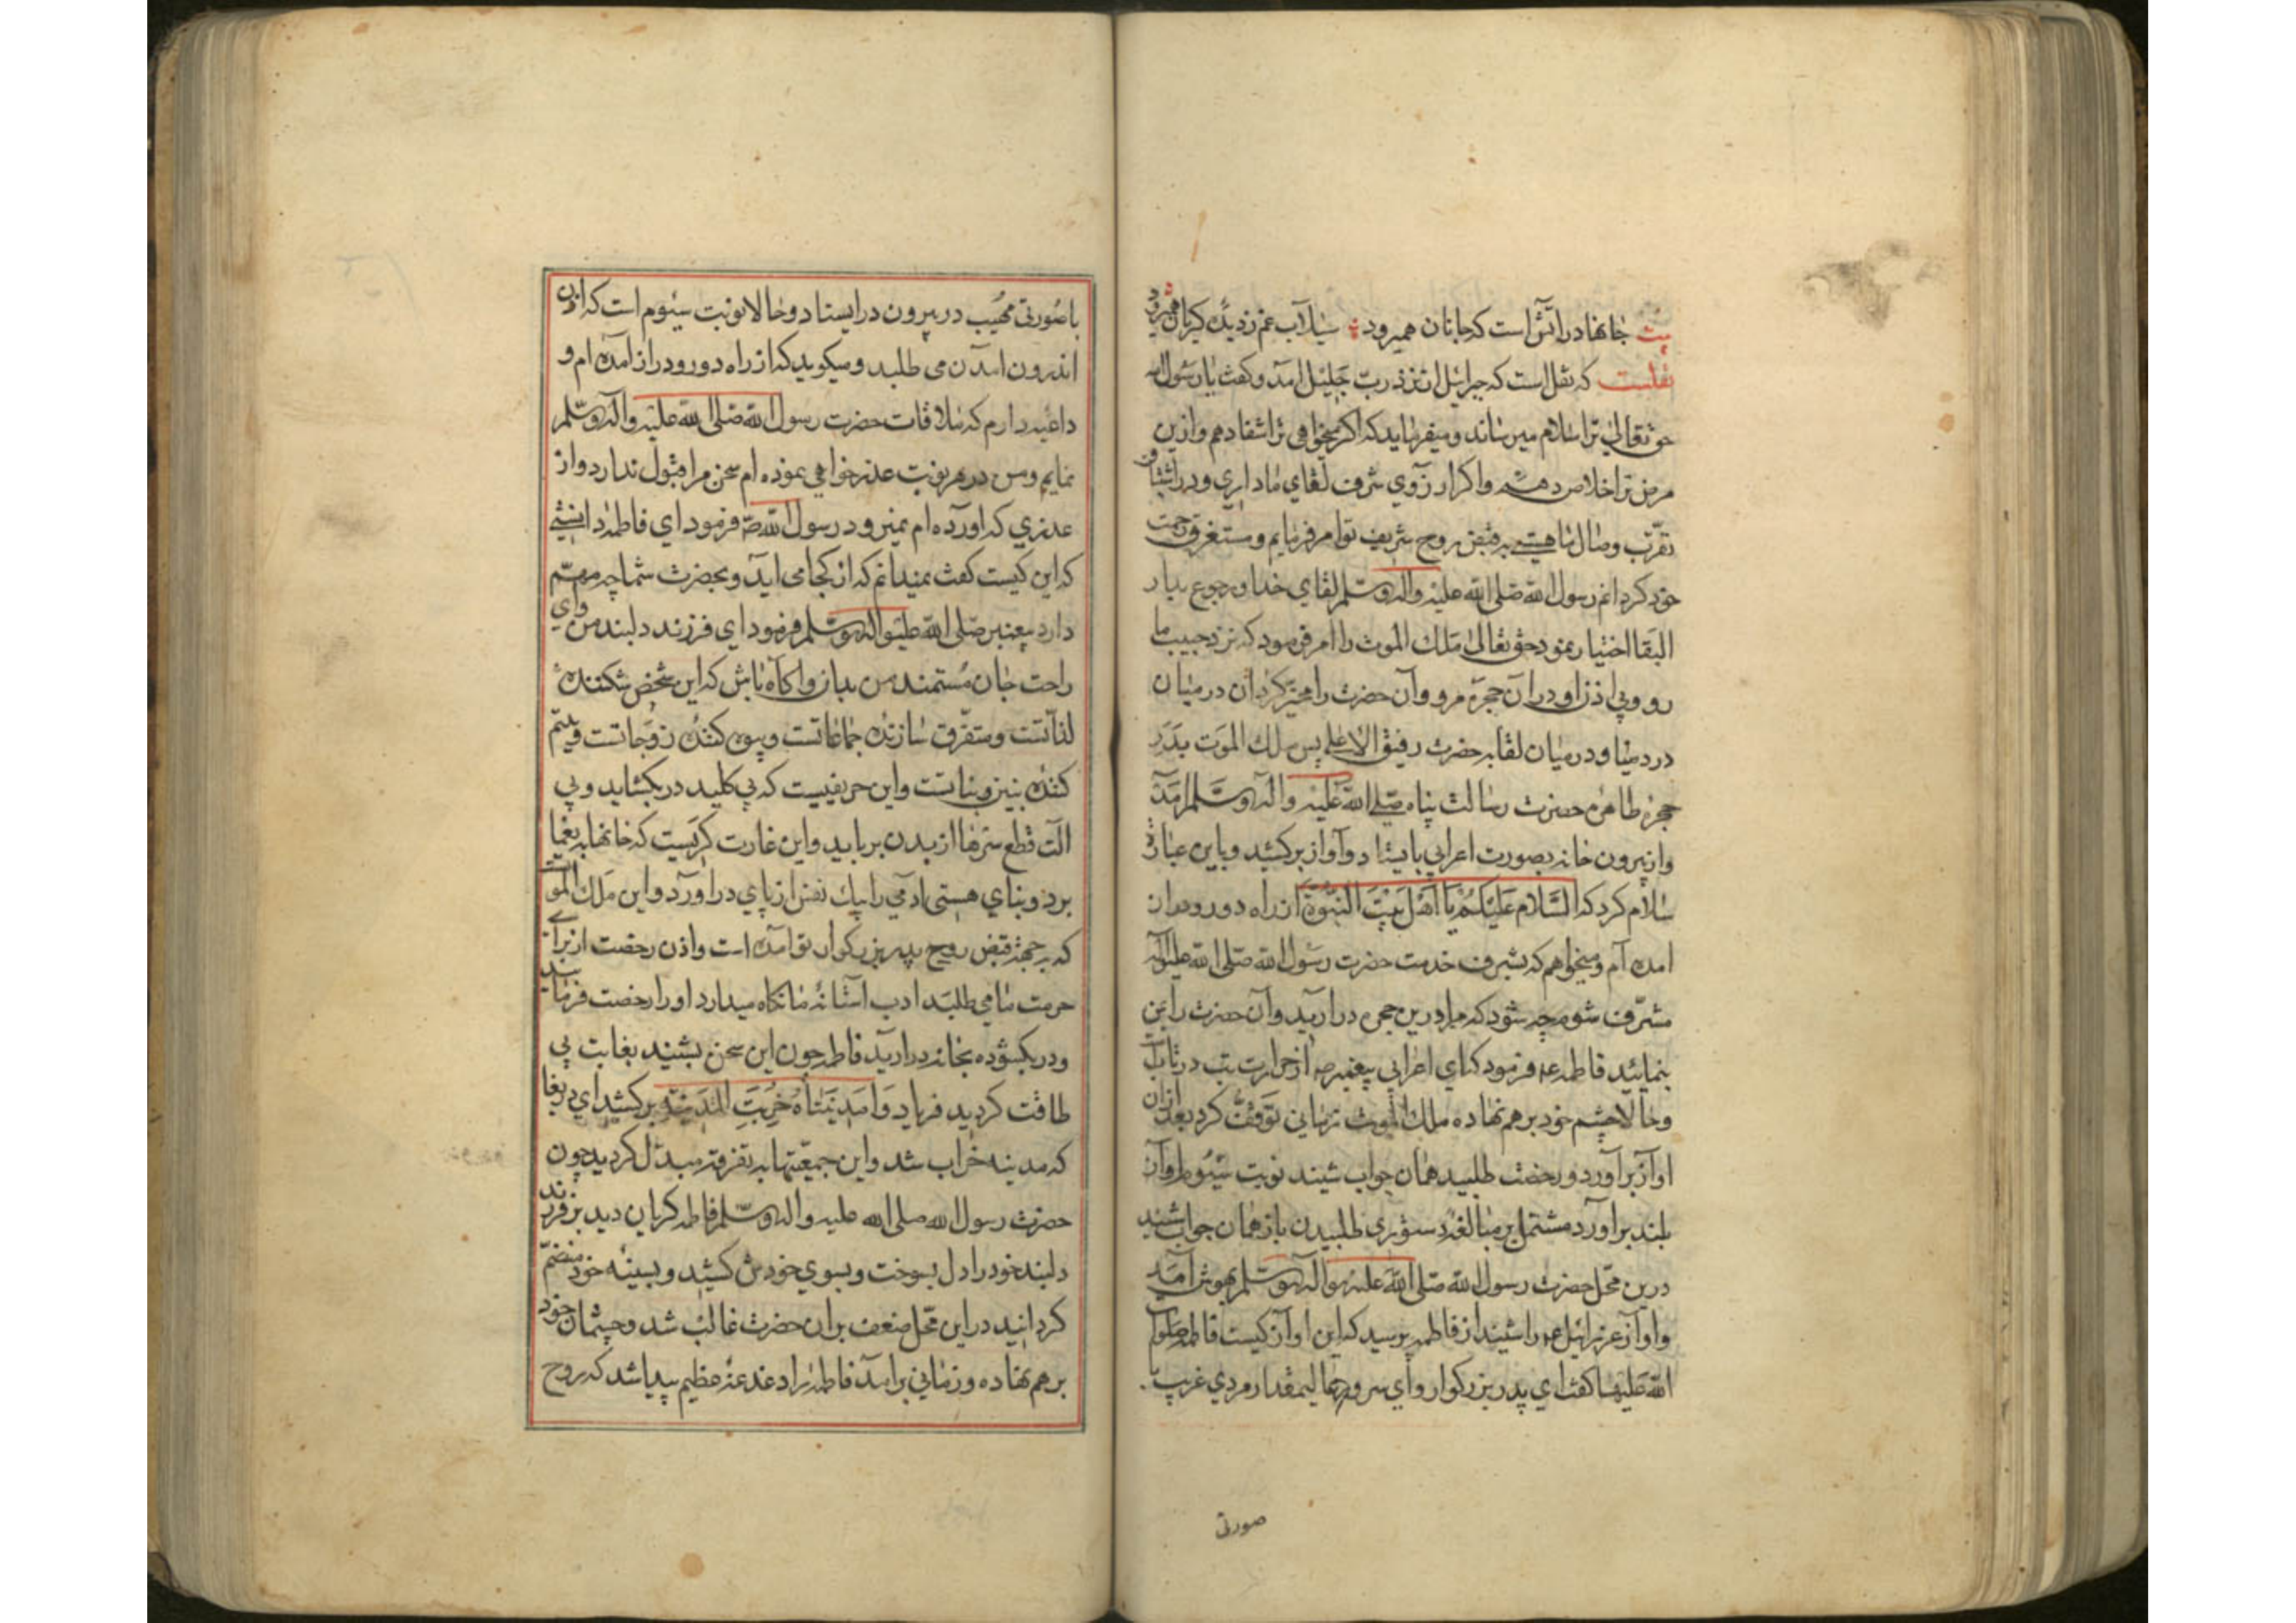 بیت جانها در آتش است که جانان همیرود ؞ سیلاب غم ز دیده گریان همیرود
نقلست که نقل است که جبرائیل از نزد رب جلیل آمد و گفت یا رسول الله
حق تعالی ترا سلام میرساند و میفرماید که اگر میخواهی ترا شفا دهم و ازین
مرض ترا خلاص دهم و اگر آرزوی شرف لقای ما داری و در اشتیاق
تقرب وصال ما هستی بر قبض روح شریف تو امر فرمایم و مستغرق رحمت
خود گردانم رسول الله صلی الله علیه وآله وسلم لقای خدا و رجوع بدار
البقا اختیار نمود حق تعالی ملک الموت را امر فرمود که نزد حبیب ما
رو و بی اذن او در آن حجره مرو و آن حضرت را مخیر گردان در میان
در دنیا و در میان لقا به حضرت رفیق الاعلی پس ملک الموت بدر
حجره طاهره حضرت رسالت پناه صلی الله علیه وآله وسلم آمد
و از بیرون خانه بصورت اعرابی بایستاد و آواز برکشید و باین عبارة
سلام کرد که السلام علیکم یا اهل بیت النبوة از راه دور و دراز
آمده ام و میخواهم که بشرف خدمت حضرت رسول الله صلی الله علیه وآله
مشرف شوم چه شود که مرا درین حجره در آرید و آن حضرت را بمن
بنمائید فاطمه ع فرمود که ای اعرابی پیغمبر ص از حرارت تب در تابست
و حالا چشم خود بر هم نهاده ملک الموت زمانی توقف کرد بعد از آن
اواز برآورد و رخصت طلبید همان جواب شنید نوبت سیوم آواز
بلند برآورد مشتمل بر مبالغه دستوری طلبیدن باز همان جواب شنید
درین محل حضرت رسول الله صلی الله علیه وآله وسلم بهوش آمد
و اواز عزرائیل ع را شنید از فاطمه پرسید که این اواز کیست فاطمه صلوات
الله علیها گفت ای پدر بزرگوار و ای سرور عالیمقدار مردی غریب با
صورتی
با صورتی مهیب در بیرون در ایستاد و حالا نوبت سیوم است که اذن
اندرون آمدن می طلبد و میگوید که از راه دور و دراز آمده ام و
داعیه دارم که ملاقات حضرت رسول الله صلی الله علیه وآله وسلم
نمایم و من در هر نوبت عذر خواهی نموده ام سخن مرا قبول ندارد و از
عذری که آورده ام نمیرود رسول الله ص فرمود ای فاطمه دانستی
که این کیست گفت نمیدانم که از کجا می آید و بحضرت شما چه مهم
دارد پیغمبر صلی الله علیه وآله وسلم فرمود ای فرزند دلبند من وای
راحت جان مستمند من بدان و آگاه باش که این شخص شکننده
لذاتست و متفرق سازنده جماعاتست و بیوه کننده زوجاتست و یتیم
کننده بنین و بناتست و این حریفیست که بی کلید در بگشاید و بی
آلت قطع سرها از بدن برباید و این غارت گریست که خانها به یغما
برد و بنای هستی آدمی را بیک نفس از پای درآورد و این ملک الموت
که بجهة قبض روح پدر بزرگوار تو آمده است و اذن رخصت از برای
حرمت ما می طلبد ادب آستانه ما نگاه میدارد او را رخصت فرمائید
و در بگشوده بخانه در آرید فاطمه چون این سخن بشنید بغایت بی
طاقت گردید فریاد وا مدینتاه خربت المدینة برکشید ای دریغا
که مدینه خراب شد و این جمعیتها به تفرقه مبدل گردید چون
حضرت رسول الله صلی الله علیه وآله وسلم فاطمه گریان دید بر فرزند
دلبند خود را دل بسوخت و بسوی خودش کشید و بسینه خود منضم
گردانید در این محل ضعف بر آن حضرت غالب شد و چشمان خود
بر هم نهاده و زمانی برآمد فاطمه را دغدغه عظیم پیدا شد که روح